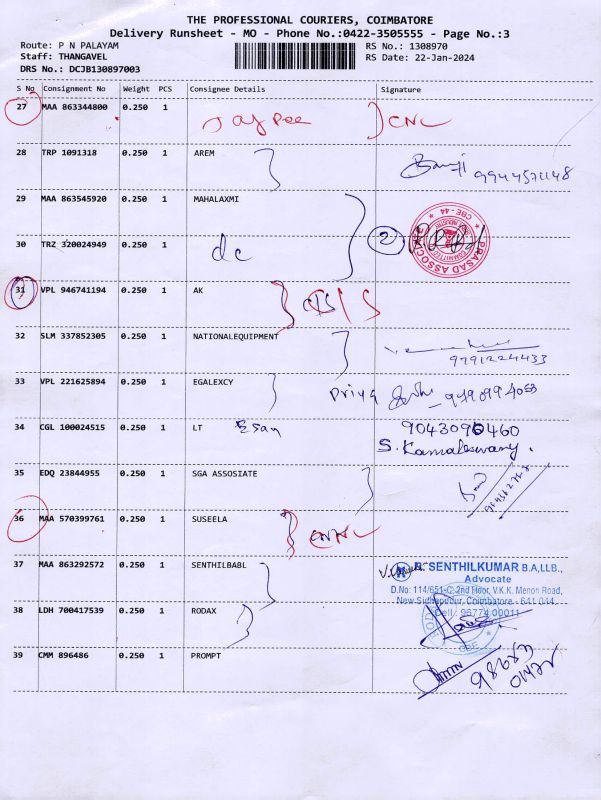 THE PROFESSIONAL COURIERS, COIMBATORE
Delivery Runsheet - MO - Phone No.:0422-3505555 - Page No.:3
Route: P N PALAYAM RS No.: 1308970
Staff: THANGAVEL RS Date: 22-Jan-2024
DRS No.: DCJB130897003
S No Consignment No Weight PCS Consignee Details Signature
27 MAA 863344800 0.250 1 CNL
28 TRP 1091318 0.250 1 AREM
9944571148
29 MAA 863545920 0.250 1 MAHALAXMI
30 TRZ 320024949 0.250 1 dc 2 PRASAD ASSOC CBE-44
31 VPL 946741194 0.250 1 AK
32 SLM 337852305 0.250 1 NATIONALEQUIPMENT
9791224433
33 VPL 221625894 0.250 1 EGALEXCY Priya
34 CGL 100024515 0.250 1 LT Esan 9043096460
S. Kamaleswary.
35 EDQ 23844955 0.250 1 SGA ASSOSIATE
36 MAA 570399761 0.250 1 SUSEELA
37 MAA 863292572 0.250 1 SENTHILBABL SENTHILKUMAR B.A,LLB.,
Advocate
D.No: 114/651-C, 2nd Floor, V.K.K. Menon Road,
New Sidhapudur, Coimbatore - 641 044.
Cell: 96774 00011
38 LDH 700417539 0.250 1 RODAX
39 CMM 896486 0.250 1 PROMPT